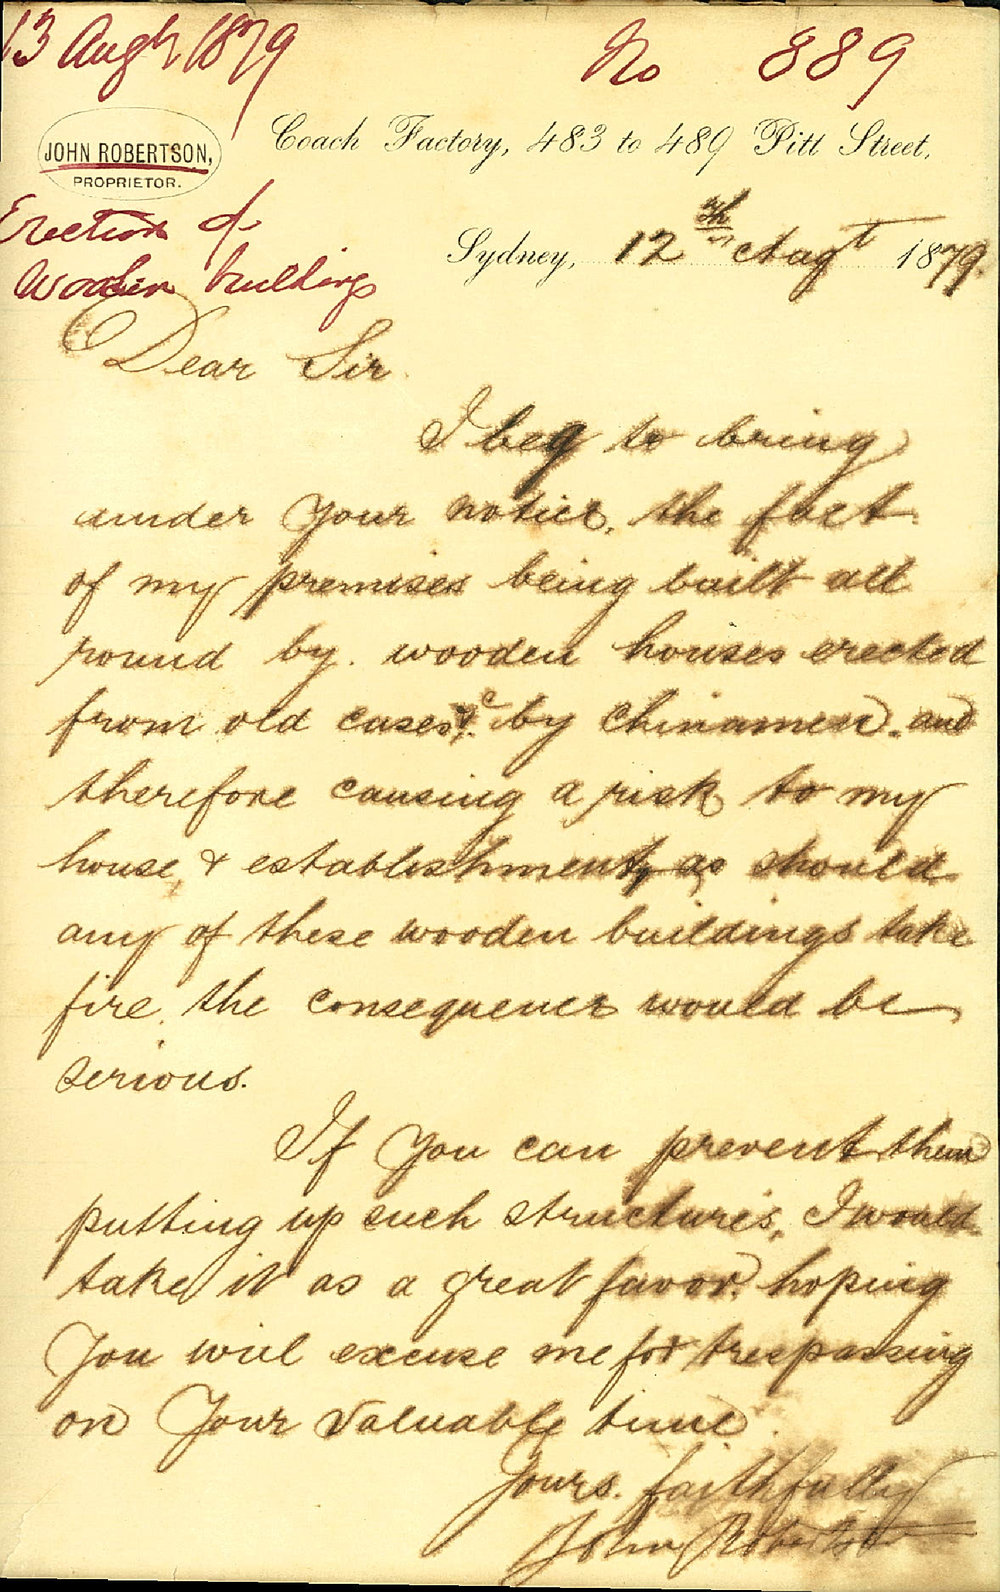 13 Augt 1879 No 889
JOHN ROBERTSON,
PROPRIETOR.
Coach Factory, 483 to 489 Pitt Street,
Erection of
Wooden buildings
Sydney, 12th Augt 1879.
Dear Sir
I beg to bring
under your notice, the fact
of my premises being built all
round by wooden houses erected
from old cases &c by Chinamen. and
therefore causing a risk to my
house & establishment, as should
any of these wooden buildings take
fire, the consequence would be
serious.
If you can prevent them
putting up such structures, I would
take it as a great favor. hoping
you will excuse me for trespassing
on your valuable time.
Yours. faithfully
John Robertson